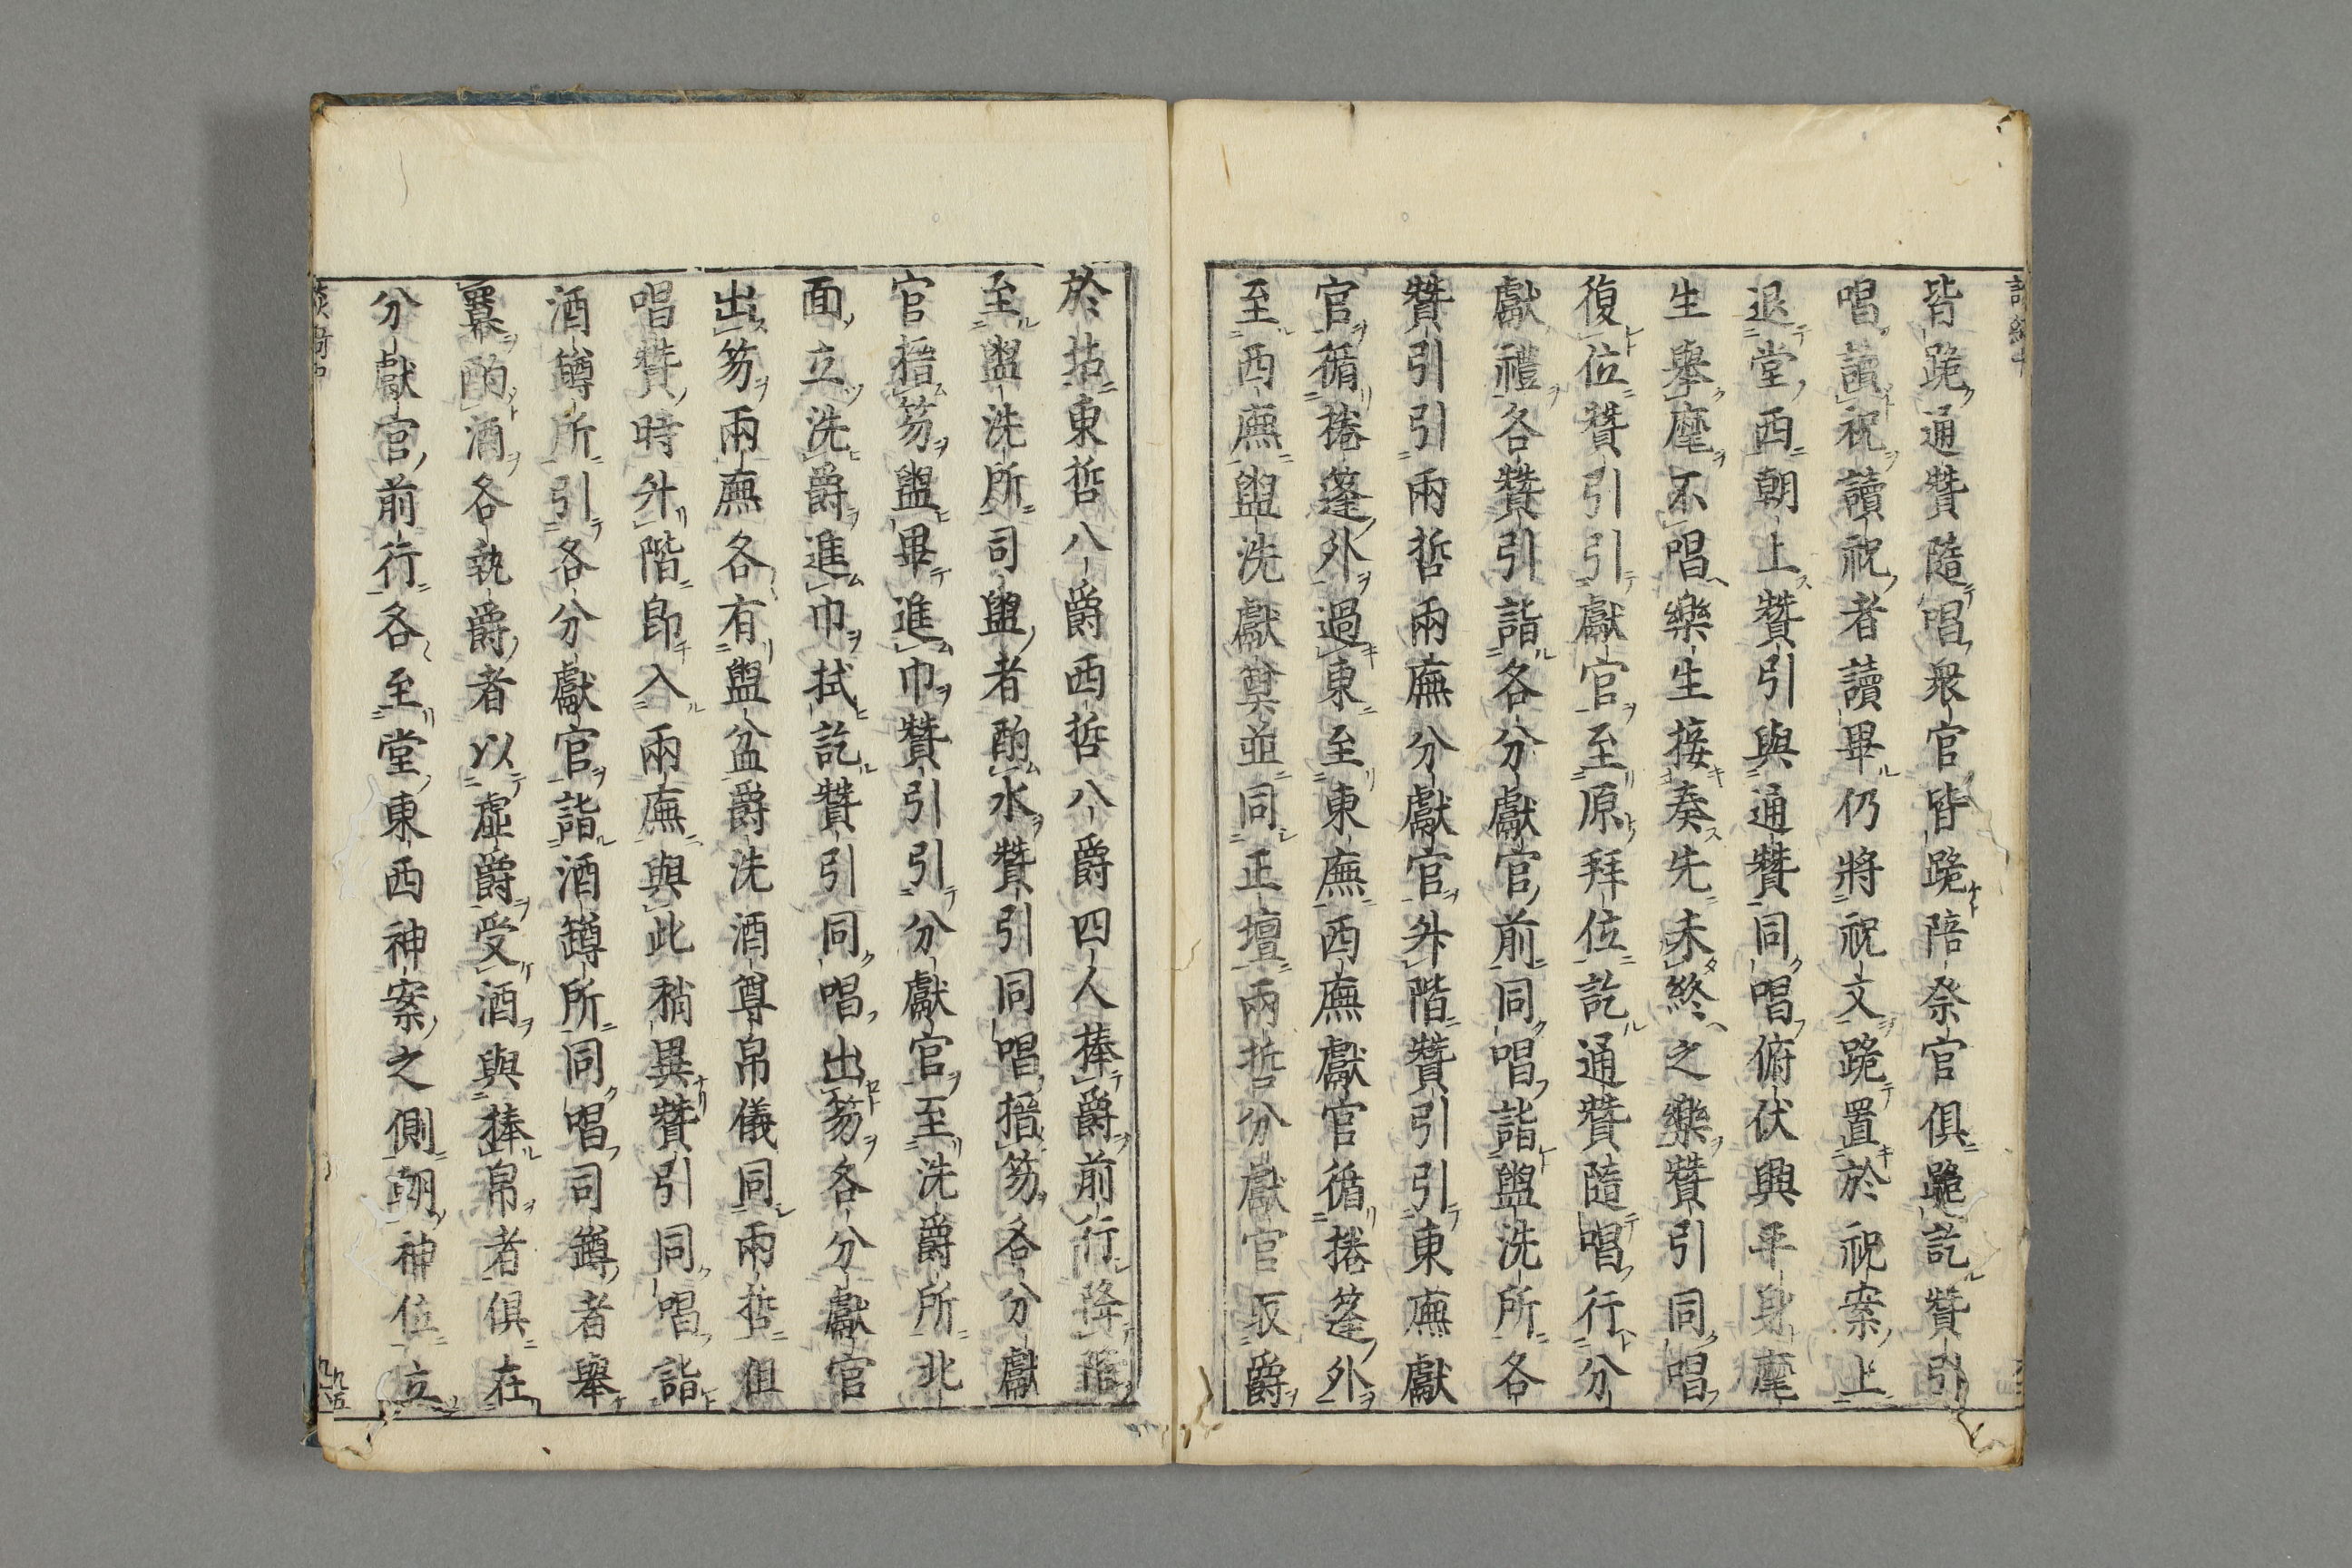 皆跪通贊隨唱衆官皆跪陪祭官俱跪訖贊引
唱讀祝讀祝者讀畢仍將祝文跪置於祝案上
退堂西朝上贊引與通贊同唱俯伏興平身麾
生舉麾不唱樂生接奏先未終之樂贊引同唱
復位贊引引獻官至原拜位訖通贊隨唱行分
獻禮各贊引詣各分獻官前同唱詣盥洗所各
贊引引兩哲兩廡分獻官升階贊引引東廡獻
官循捲篷外過東至東廡西廡獻官循捲篷外
至西廡盥洗獻奠並同正壇兩哲分獻官取爵
於坫東哲八爵西哲八爵四人捧爵前行降階
至盥洗所司盥者酌水贊引同唱搢笏各分獻
官搢笏盥畢進巾贊引引分獻官至洗爵所北
面立洗爵進巾拭訖贊引同唱出笏各分獻官
出笏兩廡各有盥盆爵洗酒尊帛儀同兩哲俱
唱贊時升階即入兩廡與此稍異贊引同唱詣
酒罇所引各分獻官詣酒罇所同唱司罇者舉
冪酌酒各執爵者以虛爵受酒與捧帛者俱在
分獻官前行各至堂東西神案之側朝神位立